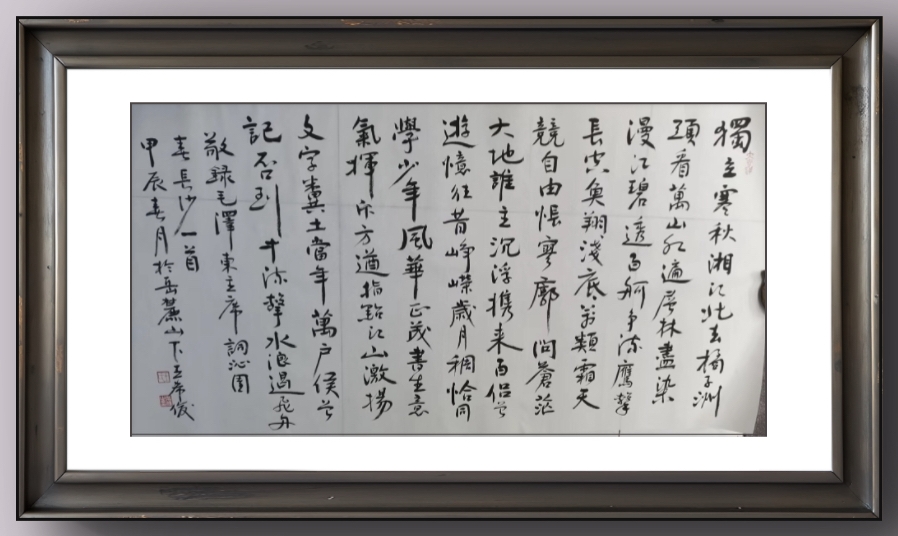 獨立寒秋湘江北去橘子洲
頭看萬山紅遍层林盡染
漫江碧透百舸争流鷹擊
長空魚翔淺底萬類霜天
競自由悵寥廓問蒼茫
大地誰主沉浮携来百侣曾
遊憶往昔崢嶸歲月稠恰同
學少年風華正茂書生意
氣揮斥方遒指點江山激揚
文字糞土當年萬户侯曾
記否到中流擊水浪遏飛舟
敬録毛澤東主席詞沁園
春長沙一首
甲辰春月於岳麓山下王希俊